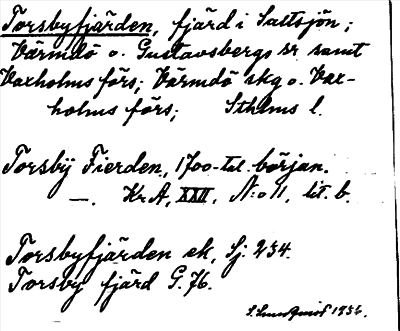 Torsbyfjärden, fjärd i Saltsjön;
Värmdö o. Gustavsbergs sr samt
Vaxholms förs; Värmdö skg o. Vax-
holms förs; Sthlms l.
Torsbÿ Fierden, 1700-tal. början.
—. Kr A, XXII, N:o 11, lit. b.
Torsbyfjärden ek, Sj. 234.
Torsby fjärd G. 76.
1936.